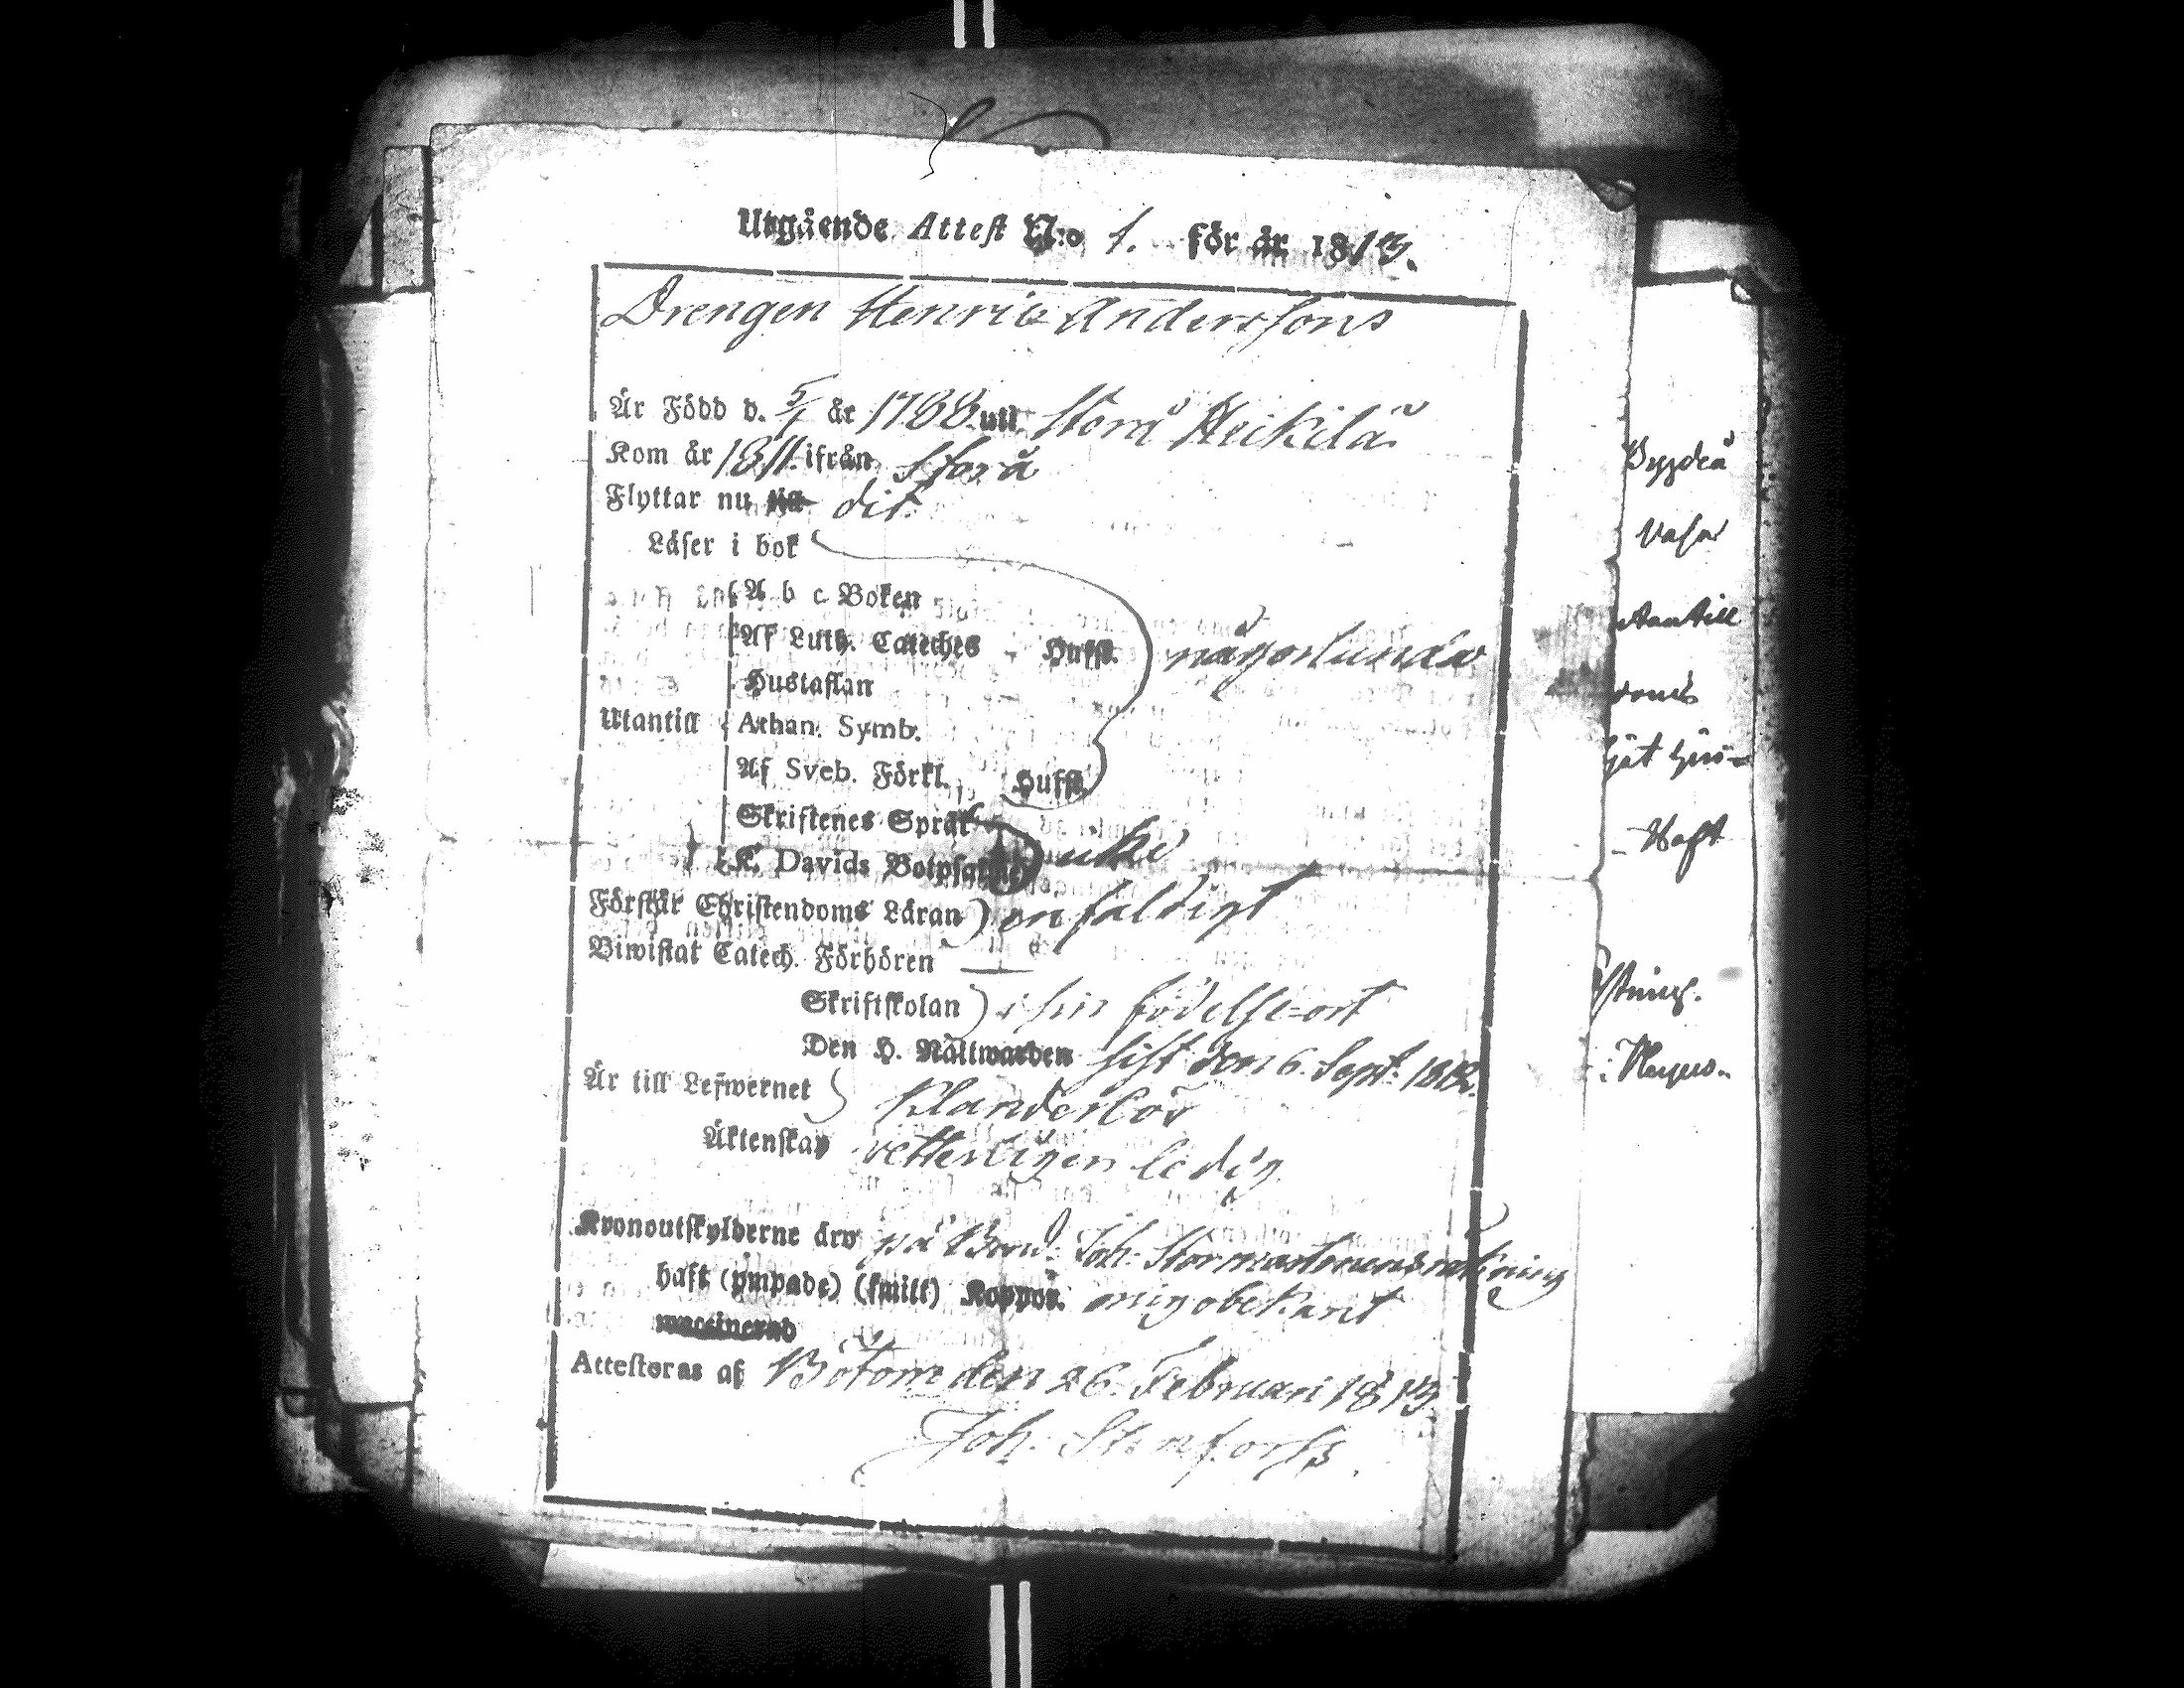 Utgående Attest N:o 1. för år 1813.
Drengen Henric Anderssons
Är Född d. 5/1 år 1788 uti Storå Heikilä
Kom år 1811. ifrån Storå
Flyttar nu till dit
Läser i bok
A b c Boken
Af Luth. Cateches - Hufst. någorlunda
Hustaflan
Utantill Athan. Symb.
Af Sveb. Förkl. Hufst.
Skriftenes Språk
K. Davids Botpsalmer icke
Förstår Christendoms Läran) enfaldigt
Biwistat Catech. Förhören —
Skriftskolan) i sin födelse-ort
Den H. Nattwarden sist den 6. Sept. 1812.
Är till Lefwernet klanderlös
Äktenskap vetterligen ledig
Kronoutskylderne äro på Bond. Joh. räkning
haft (ympade) (smitt) Koppor. mig obekant
waccinerad
Attesteras af Bötom den 26. Februari 1813.
Joh. Stenforss.
Vasa
utantill
Haft